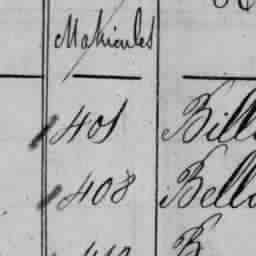 Matricules
401 Bill
408 Bell